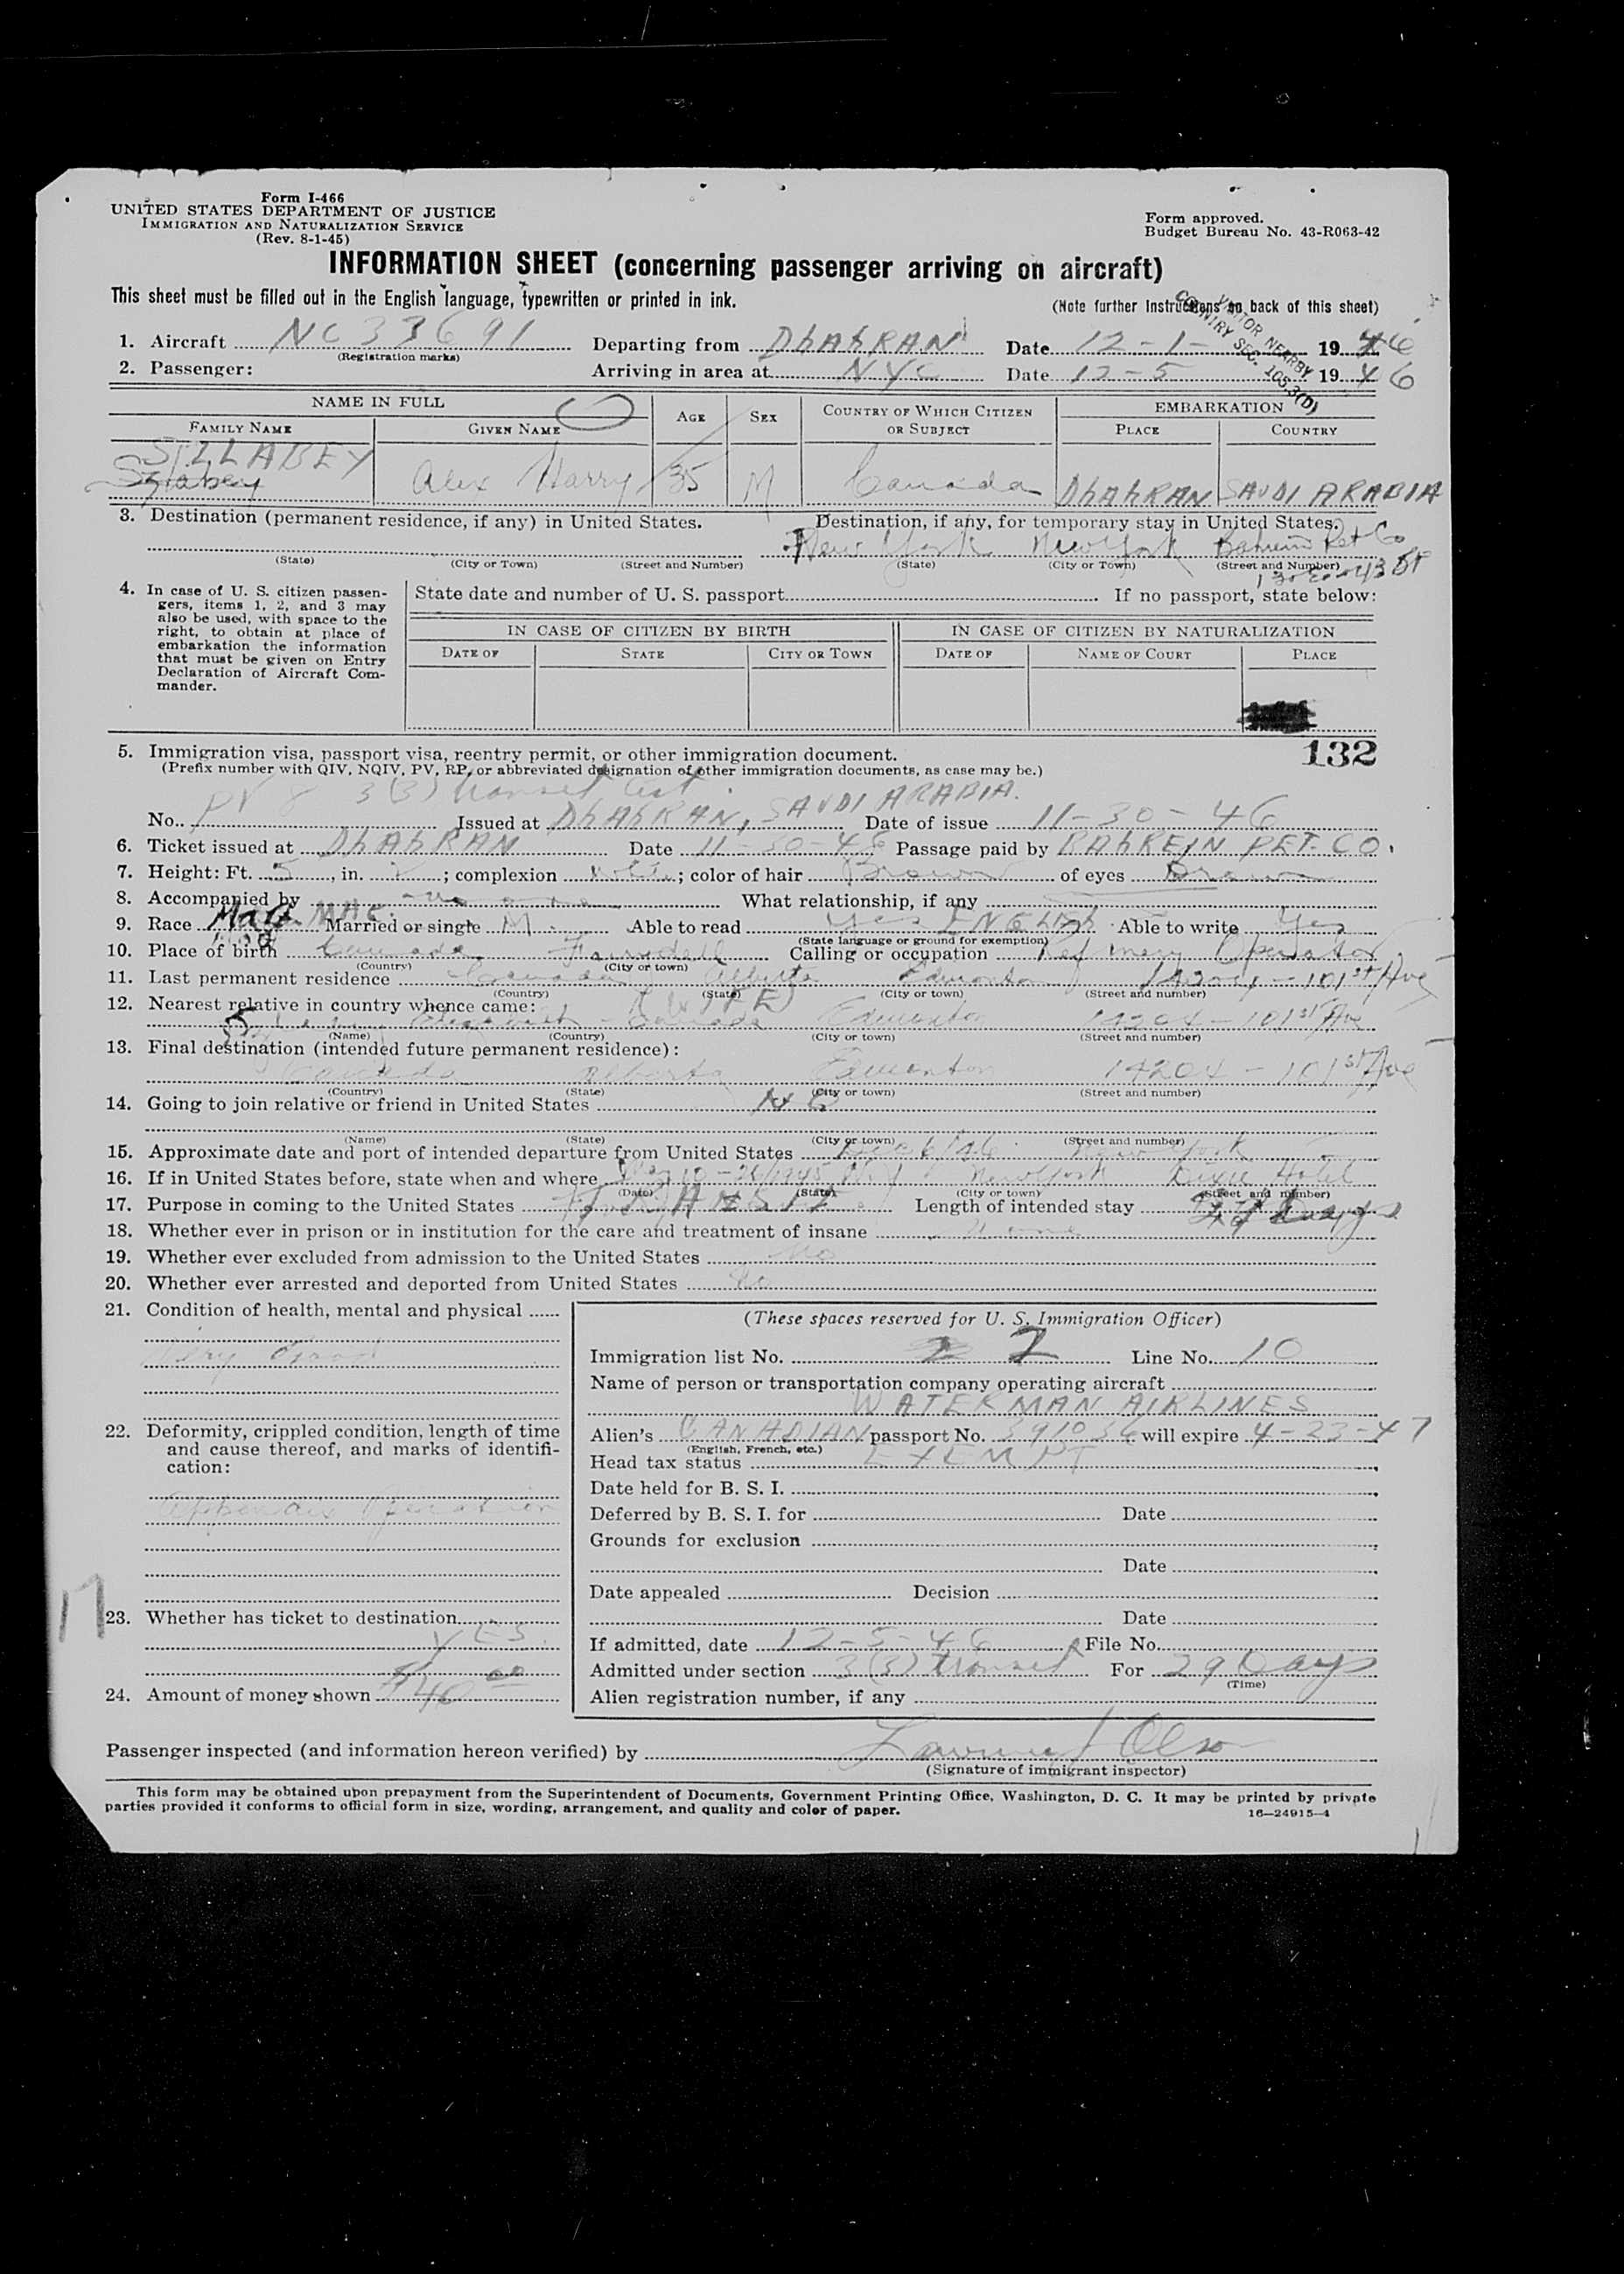 Form I-466
UNITED STATES DEPARTMENT OF JUSTICE
IMMIGRATION AND NATURALIZATION SERVICE
(Rev. 8-1-45)
Form approved.
Budget Bureau No. 43-R063-42
INFORMATION SHEET (concerning passenger arriving on aircraft)
This sheet must be filled out in the English language, typewritten or printed in ink.
(Note further Instructions on back of this sheet)
VISITOR NEARBY
COUNTRY SEC. 105.3(D)
1. Aircraft NC 33691 Departing from DhAhRAN Date 12-1- 1946
(Registration marks)
2. Passenger: Arriving in area at NYC Date 12-5 1946
NAME IN FULL AGE SEX COUNTRY OF WHICH CITIZEN OR SUBJECT EMBARKATION
FAMILY NAME GIVEN NAME PLACE COUNTRY
SILLABEY
Alex Harry 35 M Canada DhAhRAN SAUDI ARABIA
3. Destination (permanent residence, if any) in United States. Destination, if any, for temporary stay in United States.
New York New York Bahrein Pet Co
(State) (City or Town) (Street and Number) (State) (City or Town) (Street and Number)
43 St
4. In case of U. S. citizen passengers, items 1, 2, and 3 may also be used, with space to the right, to obtain at place of embarkation the information that must be given on Entry Declaration of Aircraft Commander.
State date and number of U. S. passport If no passport, state below:
IN CASE OF CITIZEN BY BIRTH IN CASE OF CITIZEN BY NATURALIZATION
DATE OF STATE CITY OR TOWN DATE OF NAME OF COURT PLACE
132
5. Immigration visa, passport visa, reentry permit, or other immigration document.
(Prefix number with QIV, NQIV, PV, RP, or abbreviated designation of other immigration documents, as case may be.)
No. PV 8 3(3) transit Act Issued at DhAhRAN, SAUDI ARABIA. Date of issue 11-30-46
6. Ticket issued at DhAhRAN Date 11-30-46 Passage paid by BAhREIN PET. CO.
7. Height: Ft. 5, in. ; complexion White; color of hair Brown of eyes Brown
8. Accompanied by What relationship, if any
9. Race Married or single M. Able to read Yes ENGLISh Able to write Yes
(State language or ground for exemption)
10. Place of birth Canada Calling or occupation Refinery Operator
(Country) (City or town)
11. Last permanent residence Canada Alberta Edmonton 14204 - 101st Ave
(Country) (State) (City or town) (Street and number)
12. Nearest relative in country whence came: (WIFE)
Elizabeth - Canada Edmonton 14204 - 101st Ave
(Name) (Country) (City or town) (Street and number)
13. Final destination (intended future permanent residence):
Canada Alberta Edmonton 14204 - 101st Ave
(Country) (State) (City or town) (Street and number)
14. Going to join relative or friend in United States No
(Name) (State) (City or town) (Street and number)
15. Approximate date and port of intended departure from United States Dec 6/46 New York
16. If in United States before, state when and where New York Dixie Hotel
(Date) (State) (City or town) (Street and number)
17. Purpose in coming to the United States TRANSIT Length of intended stay Days
18. Whether ever in prison or in institution for the care and treatment of insane None
19. Whether ever excluded from admission to the United States No
20. Whether ever arrested and deported from United States No
21. Condition of health, mental and physical
Very Good
22. Deformity, crippled condition, length of time and cause thereof, and marks of identification:
Appendix Operation
17
23. Whether has ticket to destination
YES.
24. Amount of money shown $40.00
(These spaces reserved for U. S. Immigration Officer)
Immigration list No. 2 Line No. 10
Name of person or transportation company operating aircraft
WATERMAN AIRLINES
Alien's CANADIAN passport No. 391036 will expire 4-23-47
(English, French, etc.)
Head tax status EXEMPT
Date held for B. S. I.
Deferred by B. S. I. for Date
Grounds for exclusion
Date
Date appealed Decision
Date
If admitted, date 12-5-46 File No.
Admitted under section 3(3) transit For 29 Days
(Time)
Alien registration number, if any
Passenger inspected (and information hereon verified) by
(Signature of immigrant inspector)
This form may be obtained upon prepayment from the Superintendent of Documents, Government Printing Office, Washington, D. C. It may be printed by private
parties provided it conforms to official form in size, wording, arrangement, and quality and color of paper.
16-24915-4